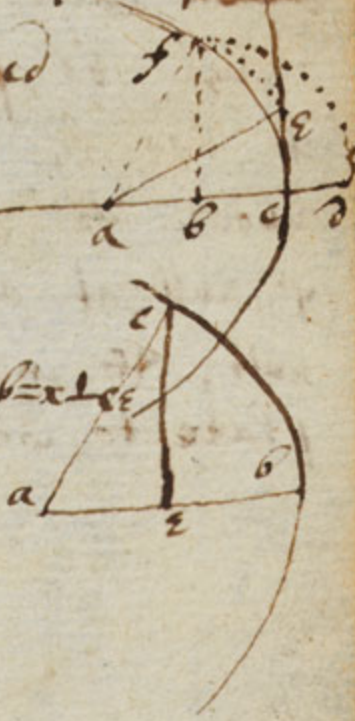 cd
f
e
a b c d
c
b=x⊥ce
a e b